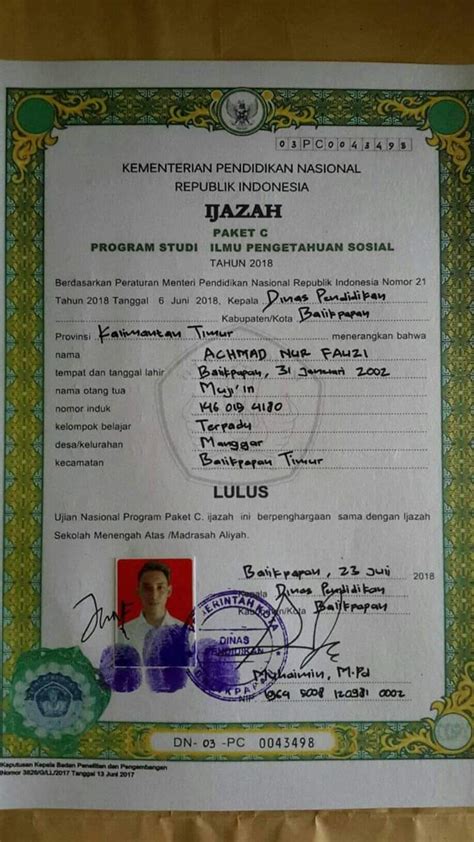 03PC0043498
KEMENTERIAN PENDIDIKAN NASIONAL
REPUBLIK INDONESIA
IJAZAH
PAKET C
PROGRAM STUDI ILMU PENGETAHUAN SOSIAL
TAHUN 2018
Berdasarkan Peraturan Menteri Pendidikan Nasional Republik Indonesia Nomor 21
Tahun 2018 Tanggal 6 Juni 2018, Kepala Dinas Pendidikan
Kabupaten/Kota Balikpapan
Provinsi Kalimantan Timur menerangkan bahwa
nama ACHMAD NUR FAUZI
tempat dan tanggal lahir Balikpapan, 31 Januari 2002
nama otang tua Muji'in
nomor induk 146 019 4180
kelompok belajar Terpadu
desa/kelurahan Manggar
kecamatan Balikpapan Timur
LULUS
Ujian Nasional Program Paket C. ijazah ini berpenghargaan sama dengan Ijazah
Sekolah Menengah Atas /Madrasah Aliyah.
Balikpapan, 23 Juli 2018
Kepala Dinas Pendidikan
Kabupaten/Kota Balikpapan
PEMERINTAH KOTA
DINAS
PENDIDIKAN
BALIKPAPAN
Muhaimin, M.Pd
NIP 1969 5008 120981 0002
DN- 03 -PC 0043498
Keputusan Kepala Badan Penelitian dan Pengembangan
Nomor 3826/G/LL/2017 Tanggal 13 Juni 2017